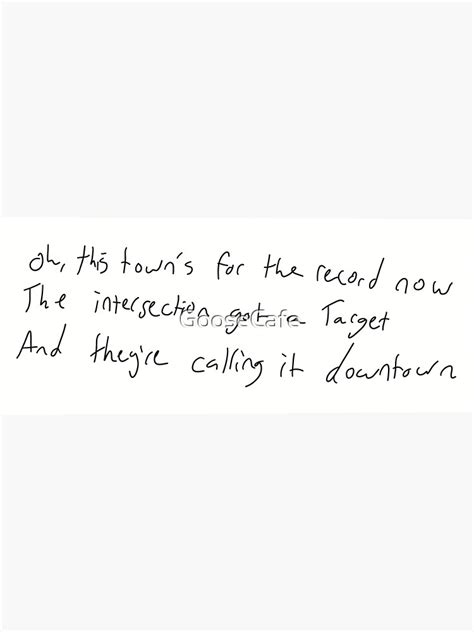 Oh, this town's for the record now
The intersection got a Target
And they're calling it downtown
GooseCafe